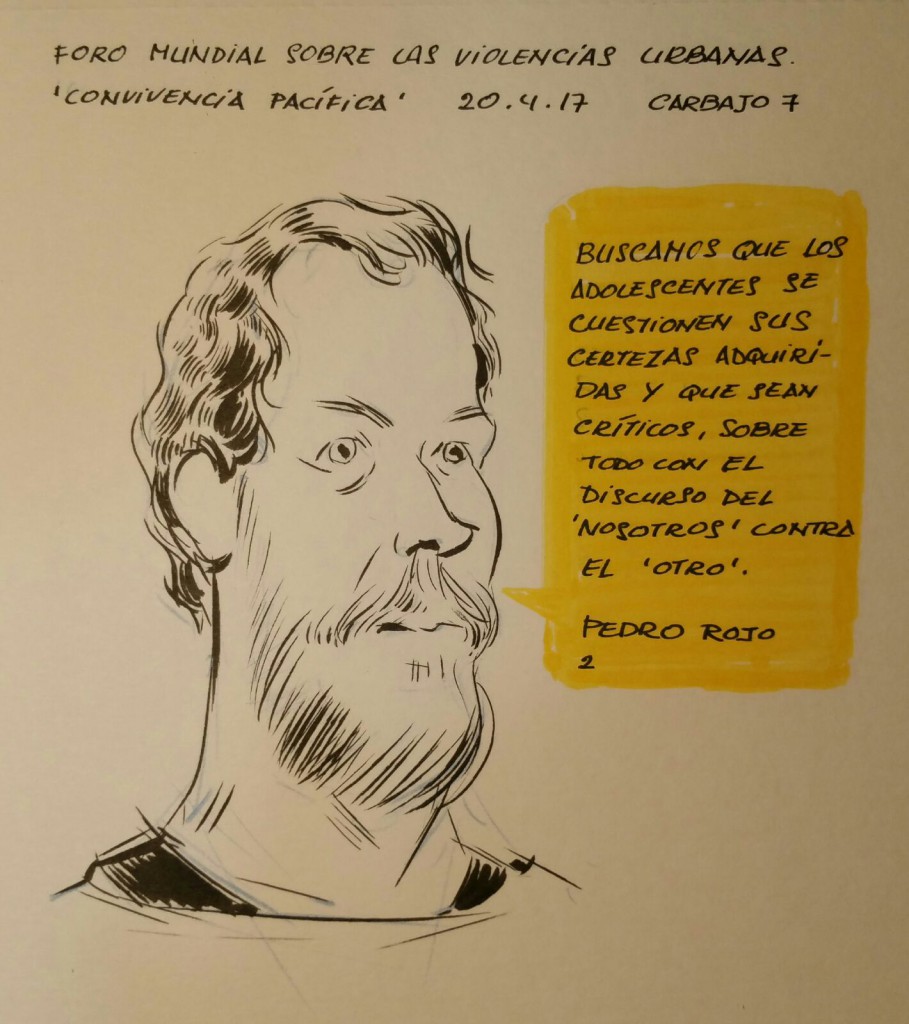 FORO MUNDIAL SOBRE LAS VIOLENCIAS URBANAS.
'CONVIVENCIA PACÍFICA' 20.4.17 CARBAJO 7
BUSCAMOS QUE LOS
ADOLESCENTES SE
CUESTIONEN SUS
CERTEZAS ADQUIRI-
DAS Y QUE SEAN
CRÍTICOS, SOBRE
TODO CON EL
DISCURSO DEL
'NOSOTROS' CONTRA
EL 'OTRO'.
PEDRO ROJO
2